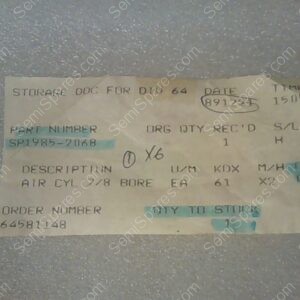 STORAGE DOC FOR DID 64 DATE TIM
891221 150
PART NUMBER ORG QTY REC'D S/L
SP1985-2068 1 H
① X6
DESCRIPTION U/M KDX M/H
AIR CYL 7/8 BORE EA 61 X2
ORDER NUMBER QTY TO STOCK
64581148 1
SemiSpares.com